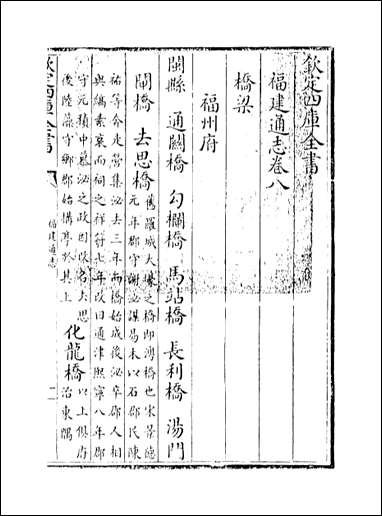 欽定四庫全書
福建通志卷八
橋梁
福州府
閩縣 通闗橋 勾欄橋 馬站橋 長利橋 湯門
閘橋 去思橋舊羅城大壕之橋即澳橋也宋景德
元年郡守謝泌謀易木以石郡民陳
祐等分走營集泌去三年而橋始成後泌卒郡人相
與縞素哀而祠之祥符七年改曰通津熈寧八年郡
守元積中慕泌之政因以名去思
後陸藻守鄉郡始構亭於其上 化龍橋以上俱府
治東隅
欽定四庫全書
福建通志